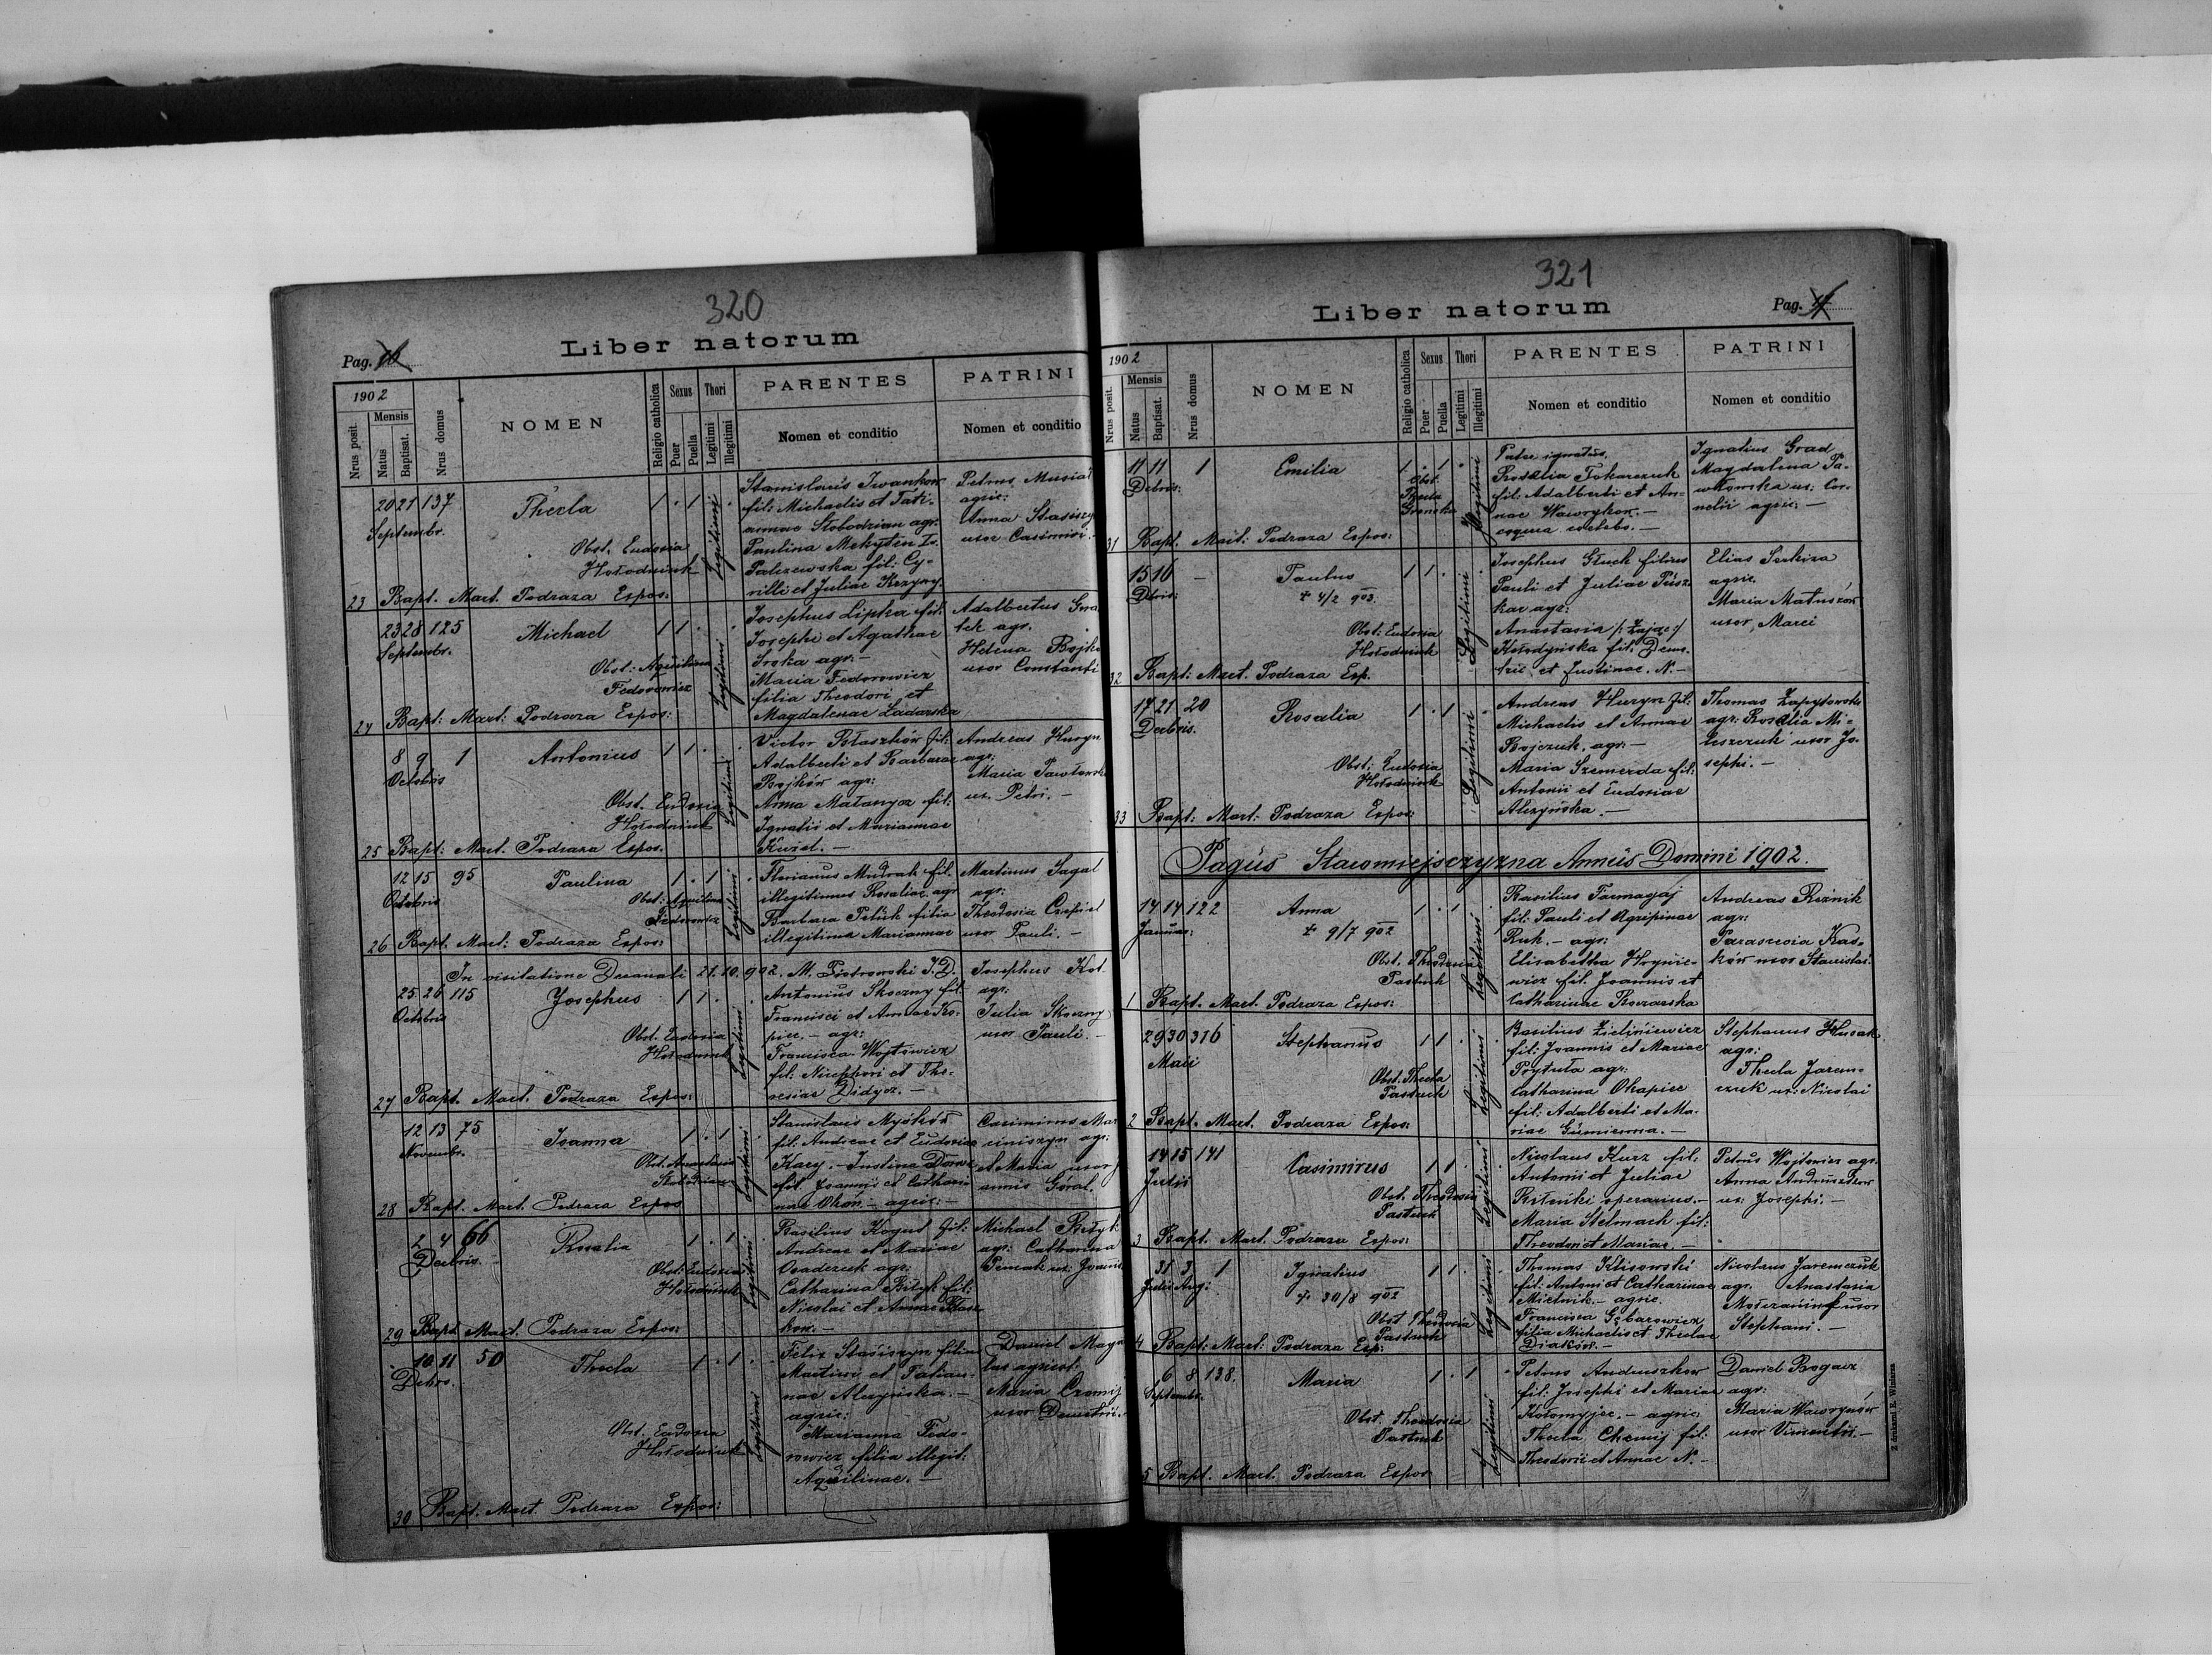 320
Liber natorum
Pag. 10
1902
Nrus posit.
Mensis
Natus
Baptisat.
Nrus domus
NOMEN
Religio catholica
Sexus
Puer
Puella
Thori
Legitimi
Illegitimi
PARENTES
Nomen et conditio
PATRINI
Nomen et conditio
20 21 137
Septembr.
Thecla
1 . 1 .
Legitimi
Obst. Eudosia
Hołodniuk
Stanislaus Iwankow
fil: Michaelis et Tati-
annae Słobodzian agr.
Paulina
Palczewska fil: Cy-
rilli et Juliae
Petrus Musiał
agric:
Anna
uxor Casimiri.
23 Bapt. Mart. Podraza Expos:
23 28 125
Septembr.
Michael
1 1 . .
Legitimi
Obst: Aquilina
Fedorowicz
Josephus Lipka fil:
Josephi et Agathae
Sroka agr. -
Maria Fedorowicz
filia Theodori et
Magdalenae Ladarska
Adalbertus
agr.
Helena
uxor
24 Bapt: Mart: Podraza Expos:
8 9 1
Octobris
Antonius
1 1 . .
Legitimi
Obst. Eudosia
Hołodniuk
Victor Błaszków fil:
Adalberti et Barbarae
Bojków agr:
Anna Matanycz fil:
Ignatii et Mariannae
Kuziel. -
Andreas Huryn
agr:
Maria
ux. Petri. -
25 Bapt: Mart. Podraza Expos.
12 15 95
Octobris
Paulina
1 . 1 .
Legitimi
Obst: Aquilina
Fedorowicz
Florianus Mudrak fil.
illegitimus Rosaliae agr
Barbara Petúk filia
illegitima Mariannae
Martinus Sagal
agr:
Theodosia
uxor Pauli. -
26 Bapt. Mart: Podraza Expos:
In visitatione Decanali 21.10.902. M. Piotrowski J.D.
25 26 115
Octobris
Josephus
1 1 . .
Legitimi
Obst. Eudosia
Hołodniuk
Antonius Skoczny fil:
Francisci et Annae Ko-
piec. - agr:
Francisca Wojtowicz
fil: Nicephori et The-
resiae Didycz. -
Josephus Kot
agr:
Julia Skoczny
uxor Pauli. -
27 Bapt. Mart. Podraza Expos:
12 13 75
Novembr.
Joanna
1 . 1 .
Legitimi
Obst. Anastasia
Stanislaus
fil. Andreae et Eudosiae
Justina
fil. Joannis et Cathari
nae - agric: -
Casimirus Mar
ciniszyn agr:
et Maria uxor
annis Góral.
28 Bapt. Mart. Podraza Expos
2 4 66
Decbris.
Rosalia
1 . 1 .
Legitimi
Obst: Eudosia
Hołodniuk
Basilius Kogut fil:
Andreae et Mariae
Osadczuk agr:
Catharina Biłyk fil:
Nicolai et Annae Błasz
kow. -
Michael Biłyk
agr: Catharina
ux:
29 Bapt. Mart. Podraza Expos:
10 11 50
Debrs.
Thecla
1 . 1 .
Legitimi
Obst. Eudosia
Hołodniuk
Felix Stasiszyn filius
Martini et Tatian-
nae Alczyńska. -
agric:
Marianna Fedo-
rowicz filia illegit:
Aquilinae. -
Daniel
agricol:
Maria
uxor Demetrii. -
30 Bapt. Mart. Podraza Expos:
321
Liber natorum
Pag.
1902
Nrus posit.
Mensis
Natus
Baptisat.
Nrus domus
NOMEN
Religio catholica
Sexus
Puer
Puella
Thori
Legitimi
Illegitimi
PARENTES
Nomen et conditio
PATRINI
Nomen et conditio
11 11 1
Debris:
Emilia
1 . 1 .
Illegitimi
Obst.
Thecla
Gronska
Pater ignotus,
Rosalia Tokarczuk
fil: Adalberti et An-
nae Wawryków. -
Ignatius Grad
Magdalena Pa-
włowska ux: Cor-
nelii agric: -
31 Bapt. Mart: Podraza Expos:
15 16 -
Dbris:
Paulus
+ 4/2 903.
1 1 . .
Legitimi
Obst: Eudosia
Hołodniuk
Josephus Głuch filius
Pauli et Juliae Pusz
kar agr:
Anastasia /: Zając :/
Kołodyńska fil. Deme-
trii et Justinae. N. -
Elias Serkiza
agric.
Maria Matuszów
uxor Marci
32 Bapt: Mart. Podraza Exp.
17 21 20
Decbris.
Rosalia
1 . 1 .
Legitimi
Obst: Eudosia
Hołodniuk
Andreas Huryn fil:
Michaelis et Annae
Bojczuk, agr. -
Maria Szemerda fil:
Antonii et Eudosiae
Alczyńska. -
Thomas
agr: Rosalia Mi-
leszczuk uxor Jo-
sephi. -
33 Bapt: Mart: Podraza Expos:
Pagus Staromiejszczyzna Annus Domini 1902.
14 14 122
Januar:
Anna
+ 9/7 902
1 . 1 .
Legitimi
Obst. Theodosia
Pastuch
Basilius Farmagaj
fil: Pauli et Agripinae
Ruk. - agr:
Elisabetha Hrynie-
wicz fil. Joannis et
Catharinae
Andreas Reznik
agr:
Parascevia Kas-
ków uxor Stanislai
1 Bapt. Mart. Podraza Expos:
29 30 316
Maii
Stephanus
1 1 . .
Legitimi
Obst. Thecla
Pastuch
Basilius Zieliniewicz
fil: Joannis et Mariae
Przytuła agr:
Catharina Okapiec
fil: Adalberti et Ma-
riae Gumienna. -
Stephanus Husak
agr:
Thecla Jarem-
czuk ux: Nicolai
2 Bapt. Mart. Podraza Expos:
14 15 141
Julii
Casimirus
1 1 . .
Legitimi
Obst. Theodosia
Pastuch
Nicolaus Kurz fil:
Antonii et Juliae
operarius. -
Maria Stelmach fil:
Theodori et Mariae. -
Petrus Wojtowicz agr.
Anna Andruszków
ux: Josephi. -
3 Bapt. Mart. Podraza Expos:
31 3 1
Julii Aug:
Ignatius
+ 30/8 902
1 1 . .
Legitimi
Obst Theodosia
Pastuch
Thomas Klisowski
fil: Antoni et Catharinae
Mielnik. - agric.
Francisca Gębarowicz
filia Michaelis et Theclae
Diaków. -
Nicolaus Jaremczuk
agr. Anastasia
uxor
Stephani. -
4 Bapt: Mart: Podraza Exp:
6 8 138.
Septembr.
Maria
1 . 1 .
Legitimi
Obst. Theodosia
Pastuch
Petrus Andruszkow
fil: Josephi et Mariae
Kołomyjec. - agric:
Thecla Chemij fil:
Theodorii et Annae N. -
Daniel Rogacz
agr:
Maria Wawryków
uxor Vincentii. -
5 Bapt. Mart. Podraza Expos
Z drukarni E. Winiarza